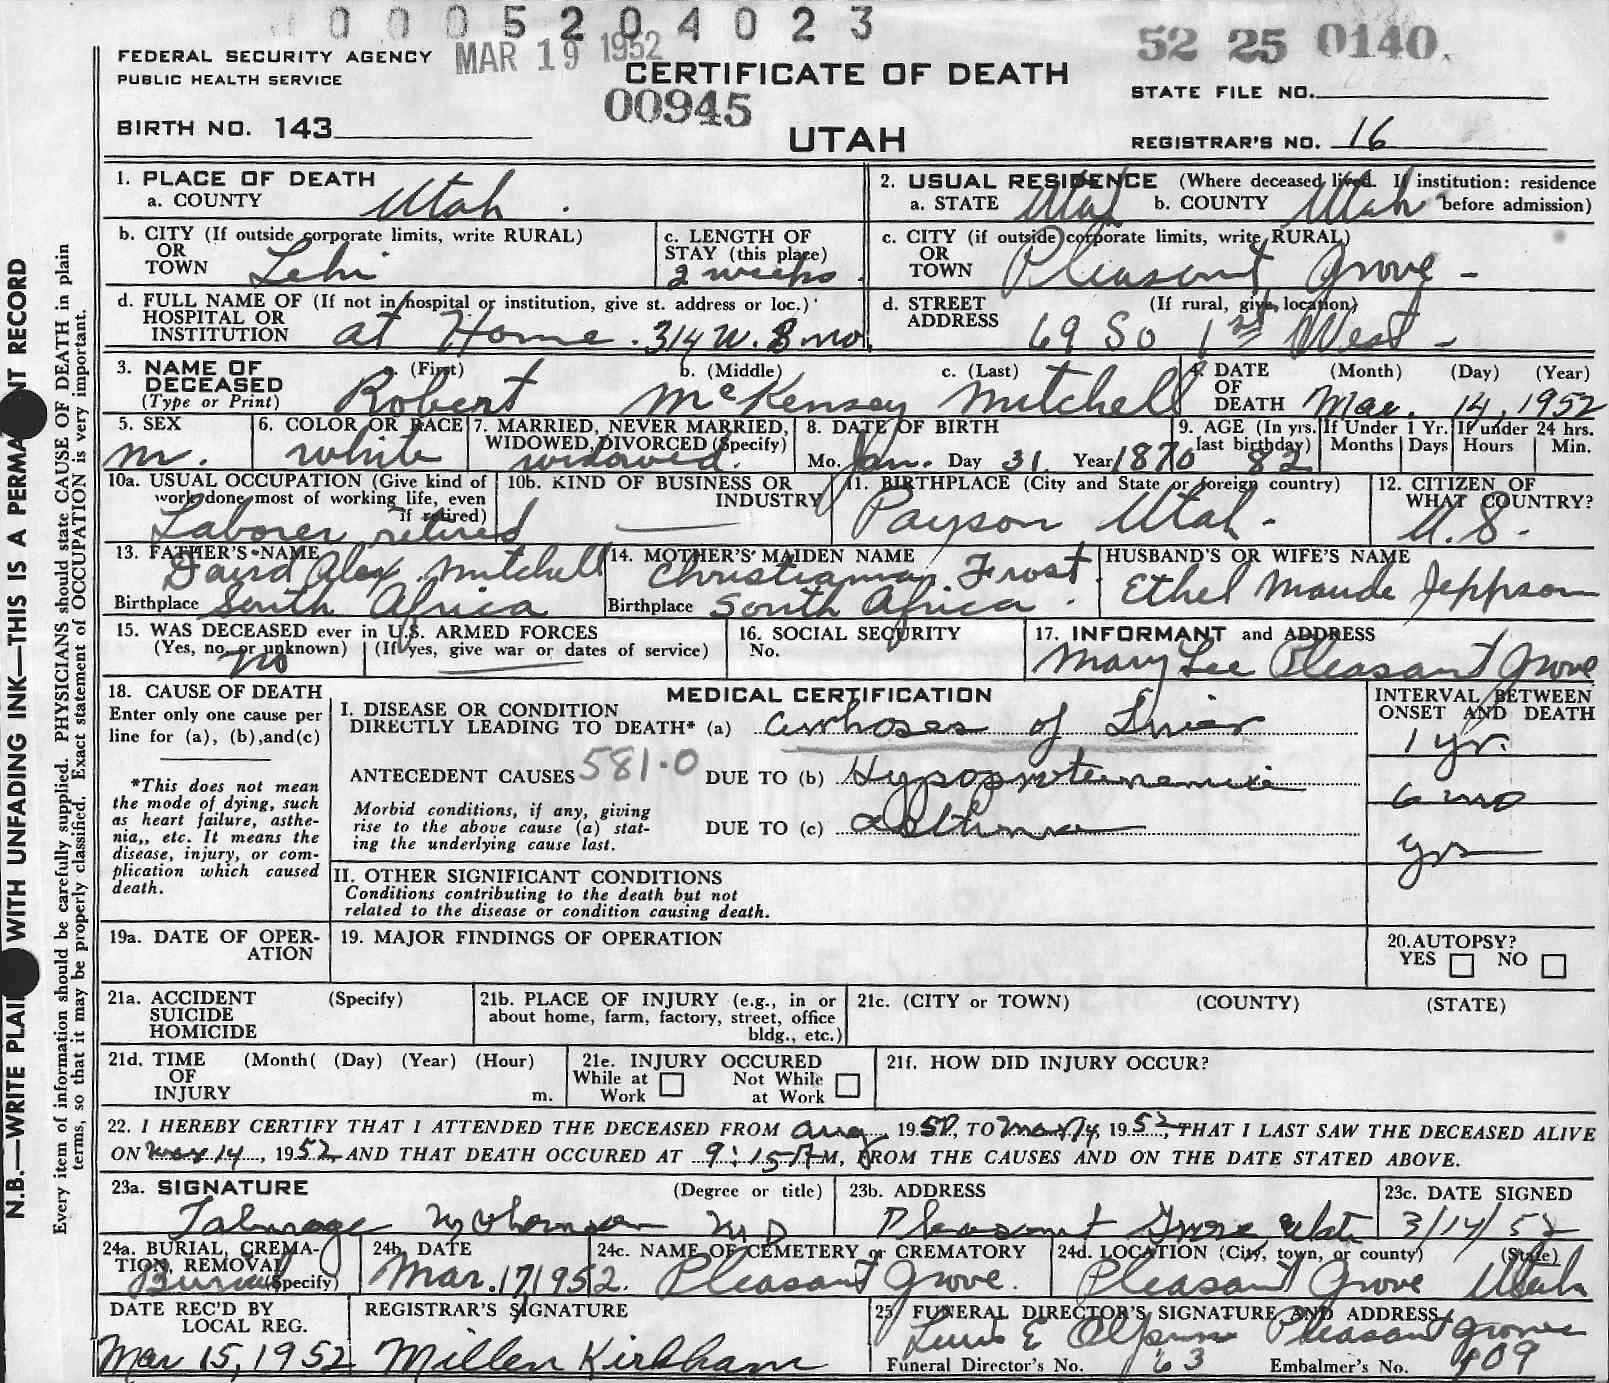 0 0 0 5 2 0 4 0 2 3
FEDERAL SECURITY AGENCY
PUBLIC HEALTH SERVICE
MAR 19 1952
CERTIFICATE OF DEATH
00945
UTAH
52 25 0140
STATE FILE NO.
BIRTH NO. 143
REGISTRAR'S NO. 16
1. PLACE OF DEATH
a. COUNTY Utah
2. USUAL RESIDENCE (Where deceased lived. If institution: residence before admission)
a. STATE Utah b. COUNTY Utah
b. CITY (If outside corporate limits, write RURAL)
OR
TOWN Lehi
c. LENGTH OF
STAY (this place)
2 weeks
c. CITY (if outside corporate limits, write RURAL)
OR
TOWN Pleasant Grove -
d. FULL NAME OF (If not in hospital or institution, give st. address or loc.)
HOSPITAL OR
INSTITUTION at Home. 314 W. 8 no
d. STREET (If rural, give location)
ADDRESS 69 So 1st West -
3. NAME OF
DECEASED
(Type or Print)
a. (First) b. (Middle) c. (Last)
Robert McKensey Mitchell
4. DATE
OF
DEATH
(Month) (Day) (Year)
Mar. 14, 1952
5. SEX
m.
6. COLOR OR RACE
white
7. MARRIED, NEVER MARRIED,
WIDOWED, DIVORCED (Specify)
widowed.
8. DATE OF BIRTH
Mo. Jan. Day 31 Year 1870
9. AGE (In yrs.
last birthday)
82
If Under 1 Yr.
Months Days
If under 24 hrs.
Hours Min.
10a. USUAL OCCUPATION (Give kind of
work done most of working life, even
if retired)
Laborer retired
10b. KIND OF BUSINESS OR
INDUSTRY
11. BIRTHPLACE (City and State or foreign country)
Payson Utah -
12. CITIZEN OF
WHAT COUNTRY?
U.S.
13. FATHER'S NAME
David Alex. Mitchell
Birthplace South Africa
14. MOTHER'S MAIDEN NAME
Christiaman Frost
Birthplace South Africa.
HUSBAND'S OR WIFE'S NAME
Ethel Maude Jeppson
15. WAS DECEASED ever in U.S. ARMED FORCES
(Yes, no or unknown) (If yes, give war or dates of service)
no
16. SOCIAL SECURITY
No.
17. INFORMANT and ADDRESS
Mary Lee Pleasant Grove
18. CAUSE OF DEATH
Enter only one cause per
line for (a), (b), and (c)
*This does not mean
the mode of dying, such
as heart failure, asthe-
nia,, etc. It means the
disease, injury, or com-
plication which caused
death.
MEDICAL CERTIFICATION
I. DISEASE OR CONDITION
DIRECTLY LEADING TO DEATH* (a) Cirrhoses of Liver
ANTECEDENT CAUSES 581.0
DUE TO (b) Hypoproteinemia
Morbid conditions, if any, giving
rise to the above cause (a) stat-
ing the underlying cause last.
DUE TO (c) asthma
INTERVAL BETWEEN
ONSET AND DEATH
1 yr.
6 mo
yrs
II. OTHER SIGNIFICANT CONDITIONS
Conditions contributing to the death but not
related to the disease or condition causing death.
19a. DATE OF OPER-
ATION
19. MAJOR FINDINGS OF OPERATION
20. AUTOPSY?
YES NO
21a. ACCIDENT (Specify)
SUICIDE
HOMICIDE
21b. PLACE OF INJURY (e.g., in or
about home, farm, factory, street, office
bldg., etc.)
21c. (CITY or TOWN) (COUNTY) (STATE)
21d. TIME (Month( (Day) (Year) (Hour)
OF
INJURY m.
21e. INJURY OCCURED
While at Work Not While at Work
21f. HOW DID INJURY OCCUR?
22. I HEREBY CERTIFY THAT I ATTENDED THE DECEASED FROM Aug 1950, TO Mar 14, 1952, THAT I LAST SAW THE DECEASED ALIVE
ON Mar 14, 1952 AND THAT DEATH OCCURED AT 9:15 A M, FROM THE CAUSES AND ON THE DATE STATED ABOVE.
23a. SIGNATURE (Degree or title)
Talmage MD
23b. ADDRESS
Pleasant Grove Utah
23c. DATE SIGNED
3/14/52
24a. BURIAL, CREMA-
TION, REMOVAL
(Specify)
Burial
24b. DATE
Mar. 17, 1952.
24c. NAME OF CEMETERY or CREMATORY
Pleasant Grove.
24d. LOCATION (City, town, or county) (State)
Pleasant Grove Utah
DATE REC'D BY
LOCAL REG.
Mar 15, 1952
REGISTRAR'S SIGNATURE
Millen Kirkham
25. FUNERAL DIRECTOR'S SIGNATURE AND ADDRESS
E Pleasant Grove
Funeral Director's No. 63 Embalmer's No. 409
N.B.—WRITE PLAI WITH UNFADING INK—THIS IS A PERMA NT RECORD
Every item of information should be carefully supplied. PHYSICIANS should state CAUSE OF DEATH in plain
terms, so that it may be properly classified. Exact statement of OCCUPATION is very important.